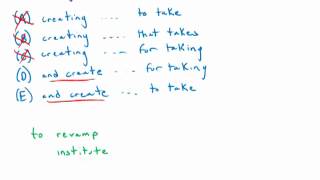 (A) creating .... to take
(B) creating .... that takes
(C) creating .... for taking
(D) and create ... for taking
(E) and create ... to take
to revamp
institute